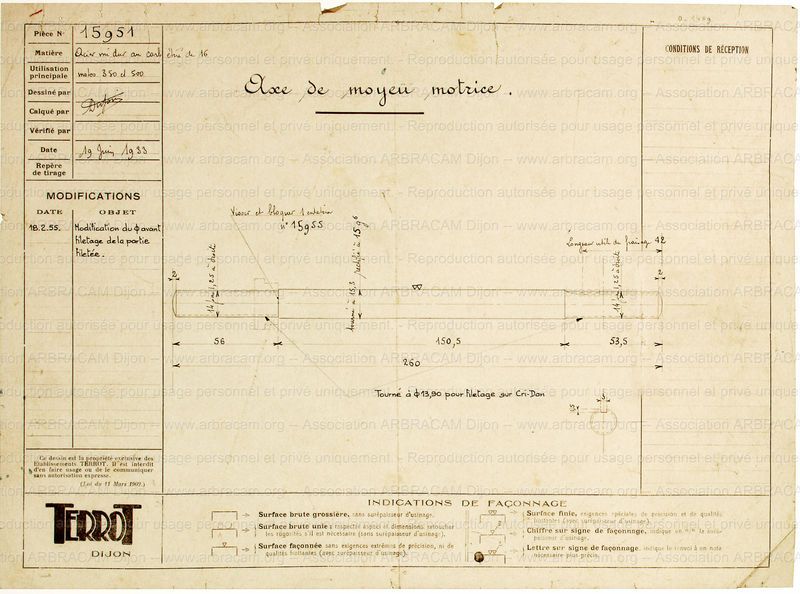 Pièce N° 15951
Matière Acier mi dur au carb étiré de 16
Utilisation principale motos 350 et 500
Dessiné par
Calqué par
Vérifié par
Date 19 Juin 1933
Repère de tirage
MODIFICATIONS
DATE OBJET
18.2.55. Modification du φ avant
filetage de la partie
filetée.
Ce dessin est la propriété exclusive des
Etablissements TERROT. Il est interdit
d'en faire usage ou de le communiquer
sans autorisation expresse.
(Loi du 11 Mars 1902.)
TERROT
DIJON
Axe de moyeu motrice.
CONDITIONS DE RÉCEPTION
Visser et bloquer l'entretoise
n° 15955
Longueur utile de fraisage 42
2
14 f 1,25 à droite
tourné à 15,3 rectifié à 15 g6
14 f 1,25 à droite
2
56
150,5
53,5
260
Tourné à φ 13,90 pour filetage sur Cri-Dan
3
INDICATIONS DE FAÇONNAGE
Surface brute grossière, sans surépaisseur d'usinage.
Surface brute unie : respecter aspect et dimensions, retoucher
les rugosités s'il est nécessaire (sans surépaisseur d'usinage).
Surface façonnée sans exigences extrêmes de précision, ni de
qualités flottantes (avec surépaisseur d'usinage).
Surface finie, exigences spéciales de précision et de qualités
flottantes (avec surépaisseur d'usinage).
Chiffre sur signe de façonnage, indique en m/m la surépaisseur d'usinage.
Lettre sur signe de façonnage, indique le renvoi à une note
nécessaire plus précise.
www.arbracam.org -- Association ARBRACAM Dijon -- www.arbracam.org -- Association ARBRACAM Dijon
Reproduction autorisée pour usage personnel et privé uniquement.